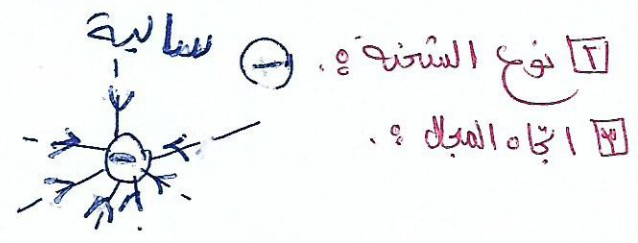 ٢ نوع الشحنة : ⊖ سالبة
٣ اتجاه المجال :